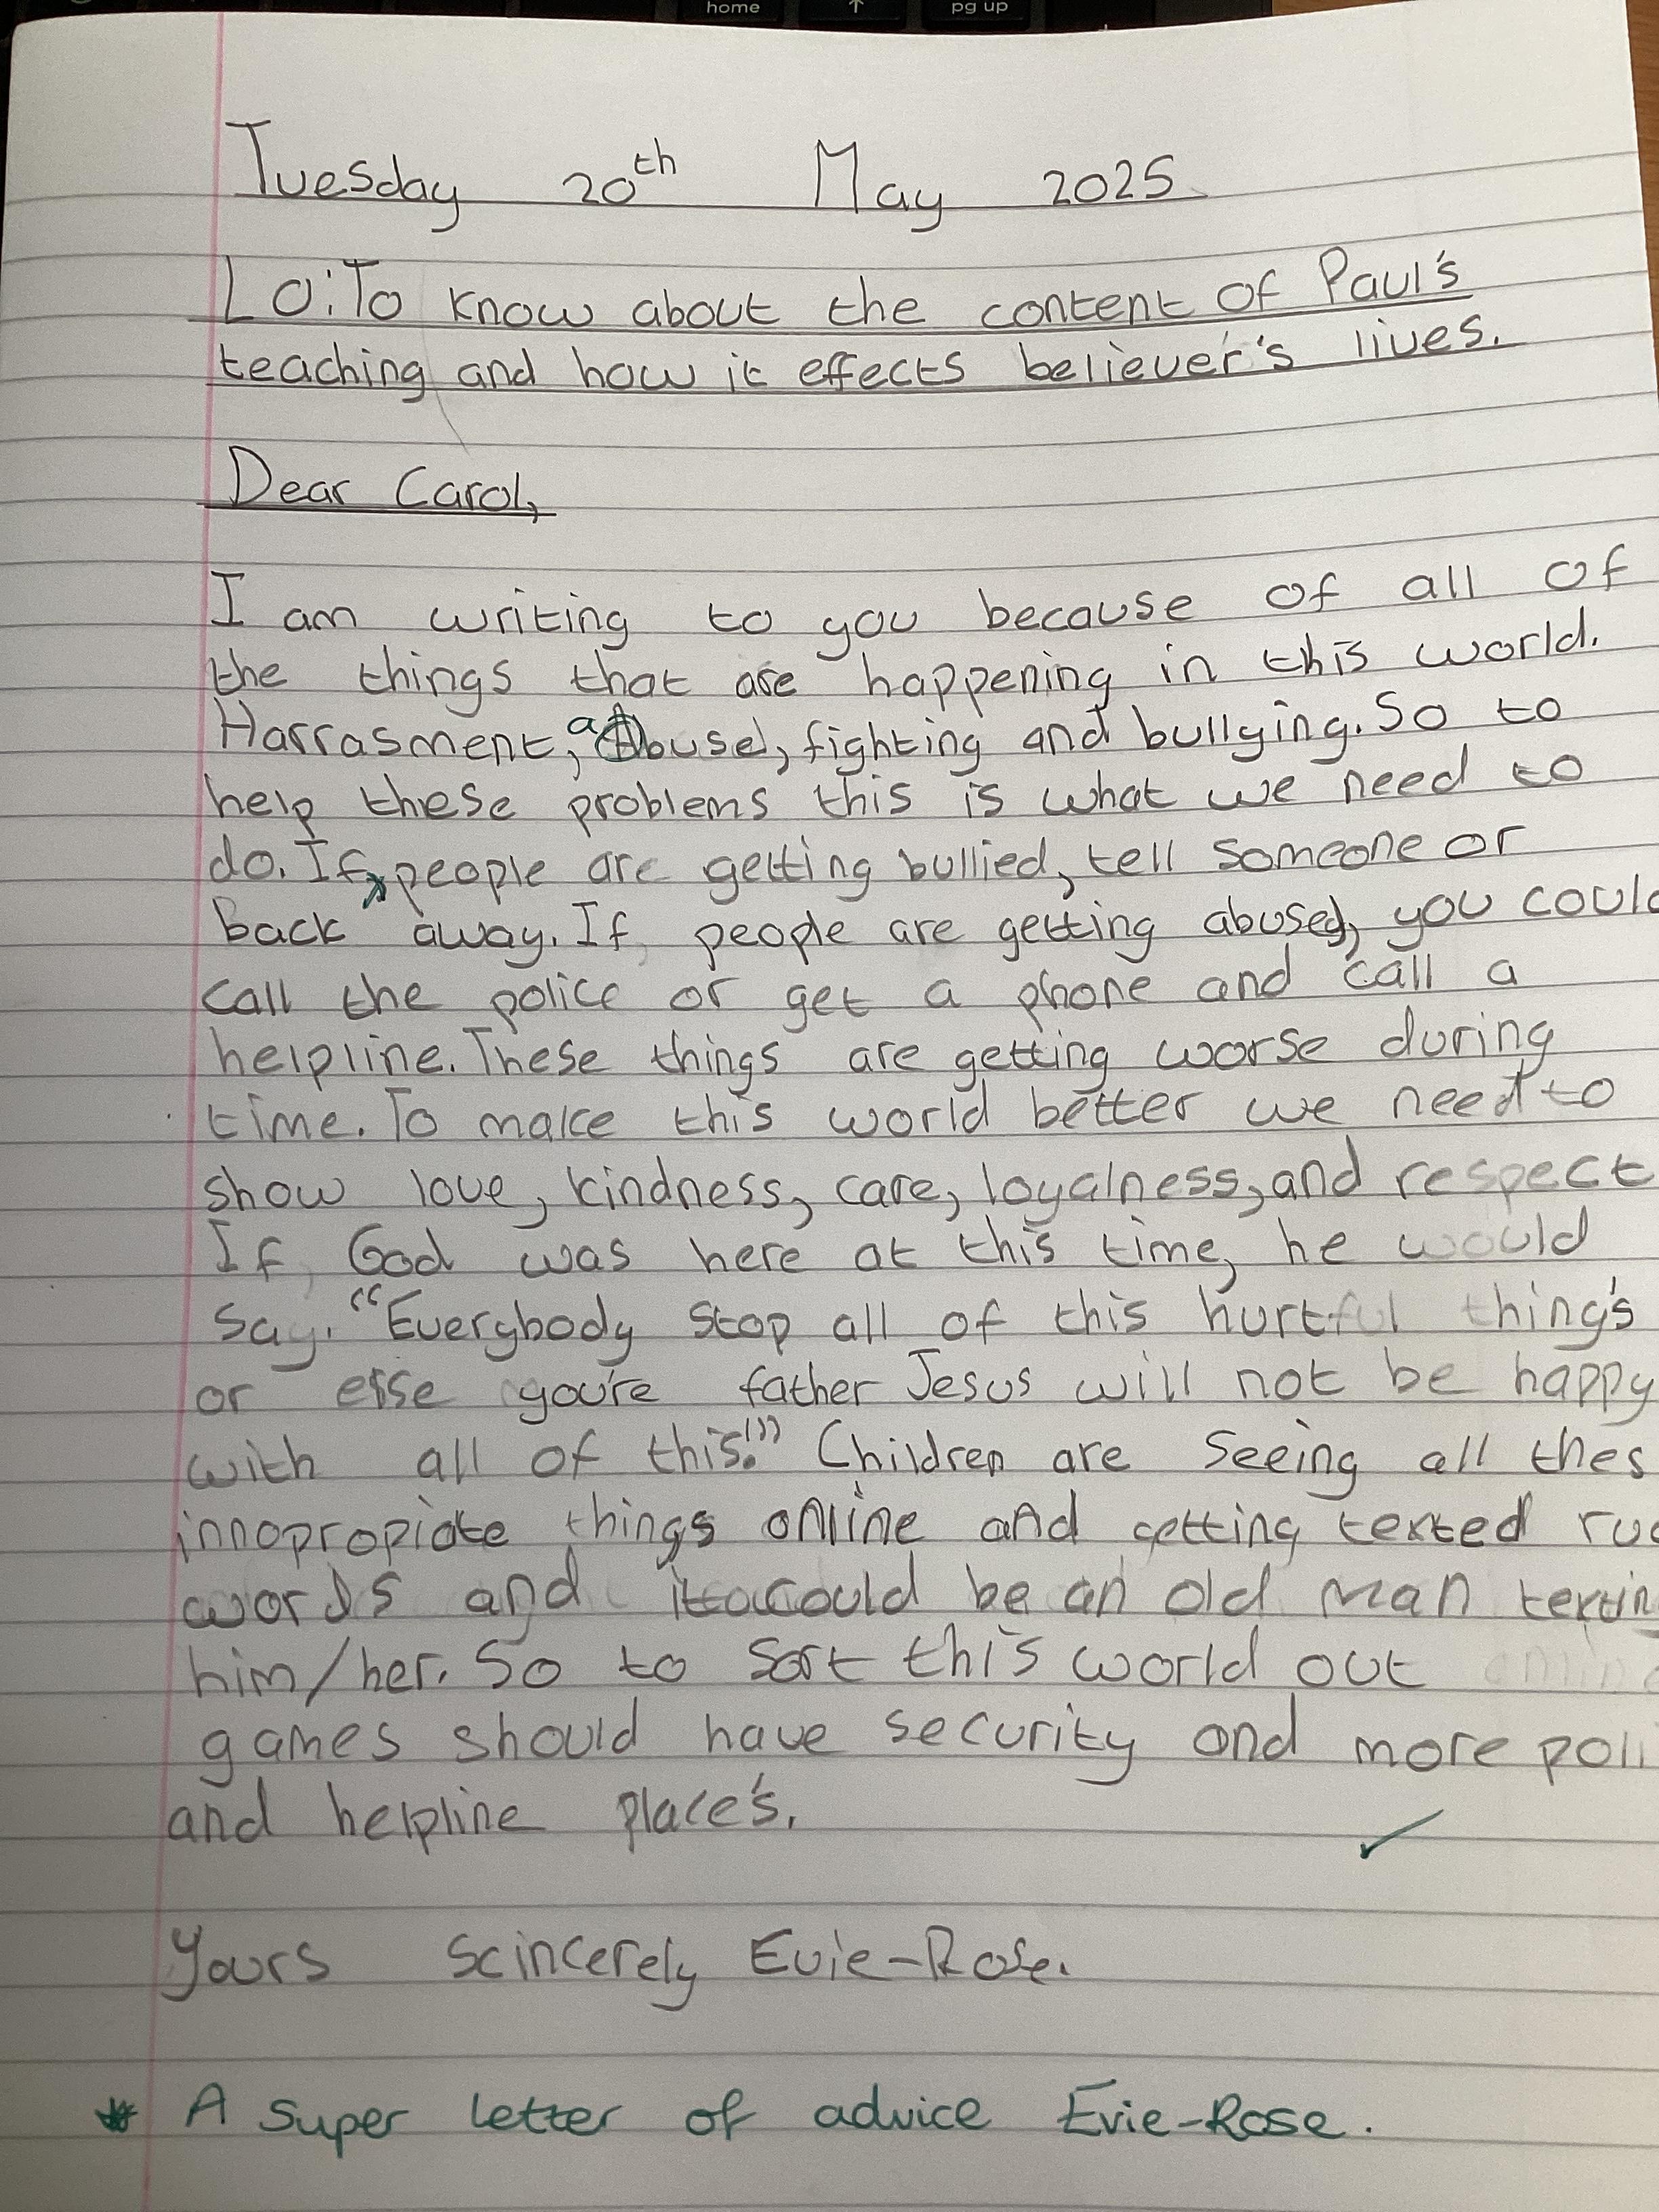 home ↑ pg up
Tuesday 20th May 2025
LO: To know about the content of Paul's
teaching and how it effects believer's lives.
Dear Carol,
I am writing to you because of all of
the things that are happening in this world.
Harrasment, abuse, fighting and bullying. So to
help these problems this is what we need to
do. If people are getting bullied, tell someone or
back away. If people are getting abused, you could
call the police or get a phone and call a
helpline. These things are getting worse during
time. To make this world better we need to
show love, kindness, care, loyalness, and respect
If God was here at this time, he would
say. "Everybody stop all of this hurtful thing's
or else you're father Jesus will not be happy
with all of this!" Children are seeing all thes
innopropiate things online and getting texted
words and could be an old man
him/her. So to sort this world out
games should have security and more
and helpline place's.
Yours scincerely Evie-Rose.
* A super letter of advice Evie-Rose.